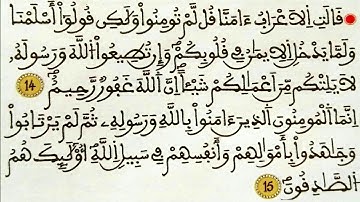 قَالَتِ اِ۬لَاعْرَابُ ءَامَنَّا قُل لَّمْ تُومِنُواْ وَلَٰكِن قُولُوٓاْ أَسْلَمْنَا
وَلَمَّا يَدْخُلِ اِ۬لِايمَٰنُ فِے قُلُوبِكُمْ وَإِن تُطِيعُواْ اُ۬للَّهَ وَرَسُولَهُۥ
لَا يَلِتْكُم مِّنَ اَعْمَٰلِكُمْ شَيْـٔاً اِنَّ اَ۬للَّهَ غَفُورٞ رَّحِيمٌ 14
اِنَّمَا اَ۬لْمُومِنُونَ اَ۬لذِينَ ءَامَنُواْ بِاللَّهِ وَرَسُولِهِۦ ثُمَّ لَمْ يَرْتَابُواْ
وَجَٰهَدُواْ بِأَمْوَٰلِهِمْ وَأَنفُسِهِمْ فِے سَبِيلِ اِ۬للَّهِ أُوْلَٰٓئِكَ هُمُ
اُ۬لصَّٰدِقُونَ 15